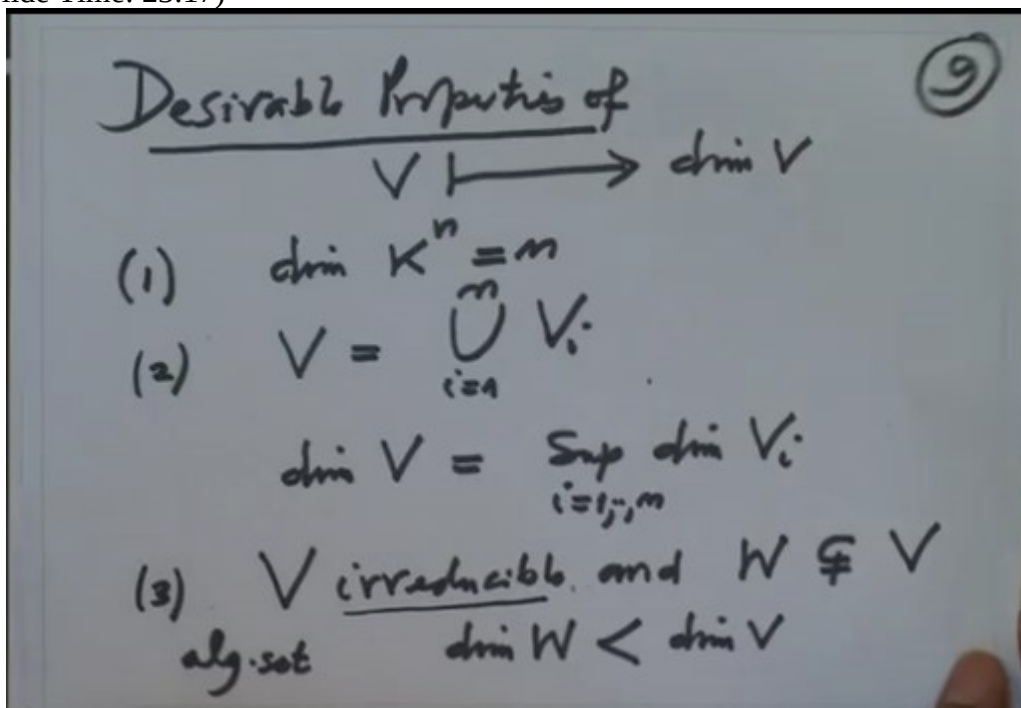 nde Time: 23:17)
9
Desirable Properties of
V ⟼ dim V
(1) dim K^n = n
(2) V = ⋃_{i=1}^{m} V_i
dim V = Sup_{i=1,..,m} dim V_i
(3) V irreducible and W ⊊ V
alg.set dim W < dim V